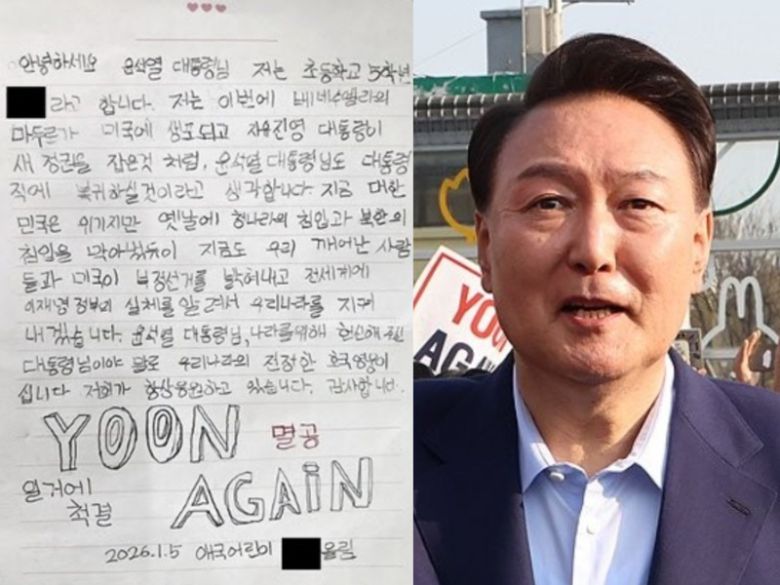 안녕하세요 윤석열 대통령님 저는 초등학교 5학년
라고 합니다. 저는 이번에 베네수엘라의
마두로가 미국에 생포되고 자유진영 대통령이
새 정권을 잡은것 처럼, 윤석열 대통령님도 대통령
직에 복귀하실것이라고 생각합니다. 지금 대한
민국은 위기지만 옛날에 청나라의 침입과 북한의
침입을 막아냈듯이 지금도 우리 깨어난 사람
들과 미국이 부정선거를 밝혀내고 전세계에
이재명 정부의 실체를 알려서 우리나라를 지켜
내겠습니다. 윤석열 대통령님, 나라를위해 헌신해 주신
대통령님이야 말로 우리나라의 진정한 호국영웅이
십니다 저희가 항상응원하고 있습니다. 감사합니다.
YOON 멸공
일거에 척결 AGAIN
2026.1.5 애국어린이 올림
YOON
AGAI